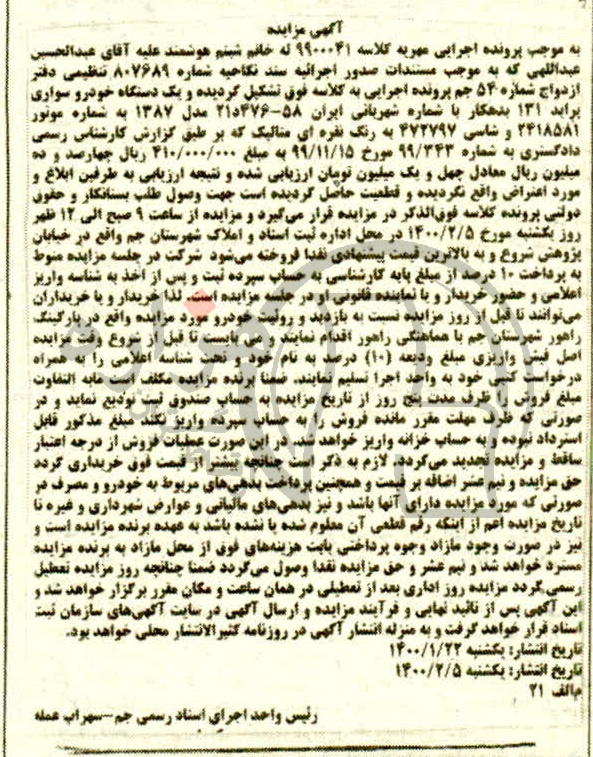 آگهی مزایده
به موجب پرونده اجرایی مهریه کلاسه ۹۹۰۰۰۴۱ له خانم شبنم هوشمند علیه آقای عبدالحسین
عبداللهی که به موجب مستندات صدور اجرائیه سند نکاحیه شماره ۸۰۷۶۸۹ تنظیمی دفتر
ازدواج شماره ۵۴ جم پرونده اجرایی به کلاسه فوق تشکیل گردیده و یک دستگاه خودرو سواری
پراید ۱۳۱ بدهکار با شماره شهربانی ایران ۵۸-۴۷۶د۲۱ مدل ۱۳۸۷ به شماره موتور
۲۴۱۸۵۸۱ و شاسی ۴۷۲۷۹۷ به رنگ نقره ای متالیک که بر طبق گزارش کارشناس رسمی
دادگستری به شماره ۹۹/۳۴۳ مورخ ۹۹/۱۱/۱۵ به مبلغ ۴۱۰/۰۰۰/۰۰۰ ریال چهارصد و ده
میلیون ریال معادل چهل و یک میلیون تومان ارزیابی شده و نتیجه ارزیابی به طرفین ابلاغ و
مورد اعتراض واقع نگردیده و قطعیت حاصل گردیده است جهت وصول طلب بستانکار و حقوق
دولتی پرونده کلاسه فوق‌الذکر در مزایده قرار می‌گیرد و مزایده از ساعت ۹ صبح الی ۱۲ ظهر
روز یکشنبه مورخ ۱۴۰۰/۲/۵ در محل اداره ثبت اسناد و املاک شهرستان جم واقع در خیابان
پژوهش شروع و به بالاترین قیمت پیشنهادی نقدا فروخته می‌شود شرکت در جلسه مزایده منوط
به پرداخت ۱۰ درصد از مبلغ پایه کارشناسی به حساب سپرده ثبت و پس از اخذ به شناسه واریز
اعلامی و حضور خریدار و یا نماینده قانونی او در جلسه مزایده است. لذا خریدار و یا خریداران
می‌توانند تا قبل از روز مزایده نسبت به بازدید و روئیت خودرو مورد مزایده واقع در پارکینگ
راهور شهرستان جم با هماهنگی راهور اقدام نمایند و می بایست تا قبل از شروع وقت مزایده
اصل فیش واریزی مبلغ ودیعه (۱۰) درصد به نام خود و تحت شناسه اعلامی را به همراه
درخواست کتبی خود به واحد اجرا تسلیم نمایند. ضمنا برنده مزایده مکلف است مابه التفاوت
مبلغ فروش را ظرف مدت پنج روز از تاریخ مزایده به حساب صندوق ثبت تودیع نماید و در
صورتی که ظرف مهلت مقرر مانده فروش را به حساب سپرده واریز نکند مبلغ مذکور قابل
استرداد نبوده و به حساب خزانه واریز خواهد شد. در این صورت عملیات فروش از درجه اعتبار
ساقط و مزایده تجدید می‌گردد. لازم به ذکر است چنانچه بیشتر از قیمت فوق خریداری گردد
حق مزایده و نیم عشر اضافه بر قیمت و همچنین پرداخت بدهی‌های مربوط به خودرو و مصرف در
صورتی که مورد مزایده دارای آنها باشد و نیز بدهی‌های مالیاتی و عوارض شهرداری و غیره تا
تاریخ مزایده اعم از اینکه رقم قطعی آن معلوم شده یا نشده باشد به عهده برنده مزایده است و
نیز در صورت وجود مازاد وجوه پرداختی بابت هزینه‌های فوق از محل مازاد به برنده مزایده
مسترد خواهد شد و نیم عشر و حق مزایده نقدا وصول می‌گردد ضمنا چنانچه روز مزایده تعطیل
رسمی گردد مزایده روز اداری بعد از تعطیلی در همان ساعت و مکان مقرر برگزار خواهد شد و
این آگهی پس از تائید نهایی و فرآیند مزایده و ارسال آگهی در سایت آگهی‌های سازمان ثبت
اسناد قرار خواهد گرفت و به منزله انتشار آگهی در روزنامه کثیرالانتشار محلی خواهد بود.
تاریخ انتشار: یکشنبه ۱۴۰۰/۱/۲۲
تاریخ انتشار: یکشنبه ۱۴۰۰/۲/۵
م‌الف ۲۱
رئیس واحد اجرای اسناد رسمی جم-سهراب عمله